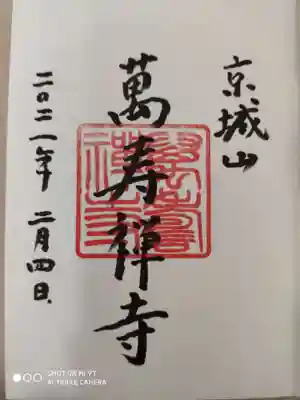 京城山
萬寿禅寺
二〇二一年 二月四日
SHOT ON MI 9T
AI TRIPLE CAMERA